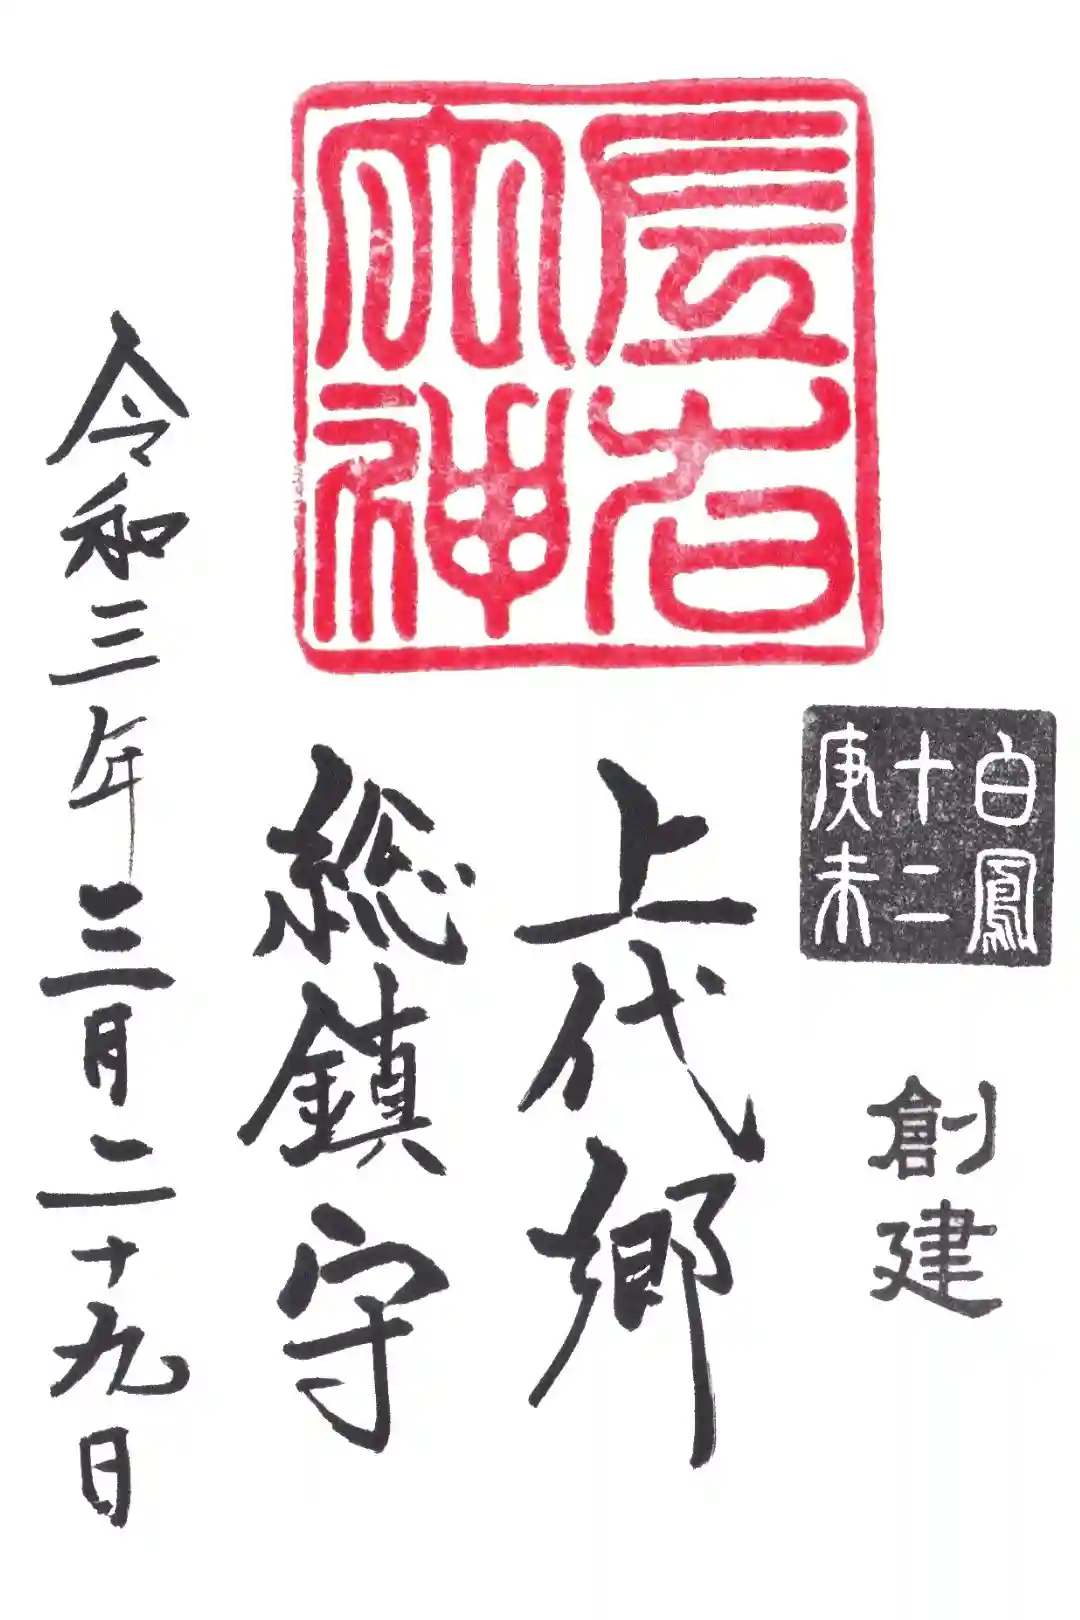 左右大神
白鳳
十二
庚未
創建
上代郷
総鎮守
令和三年三月二十九日